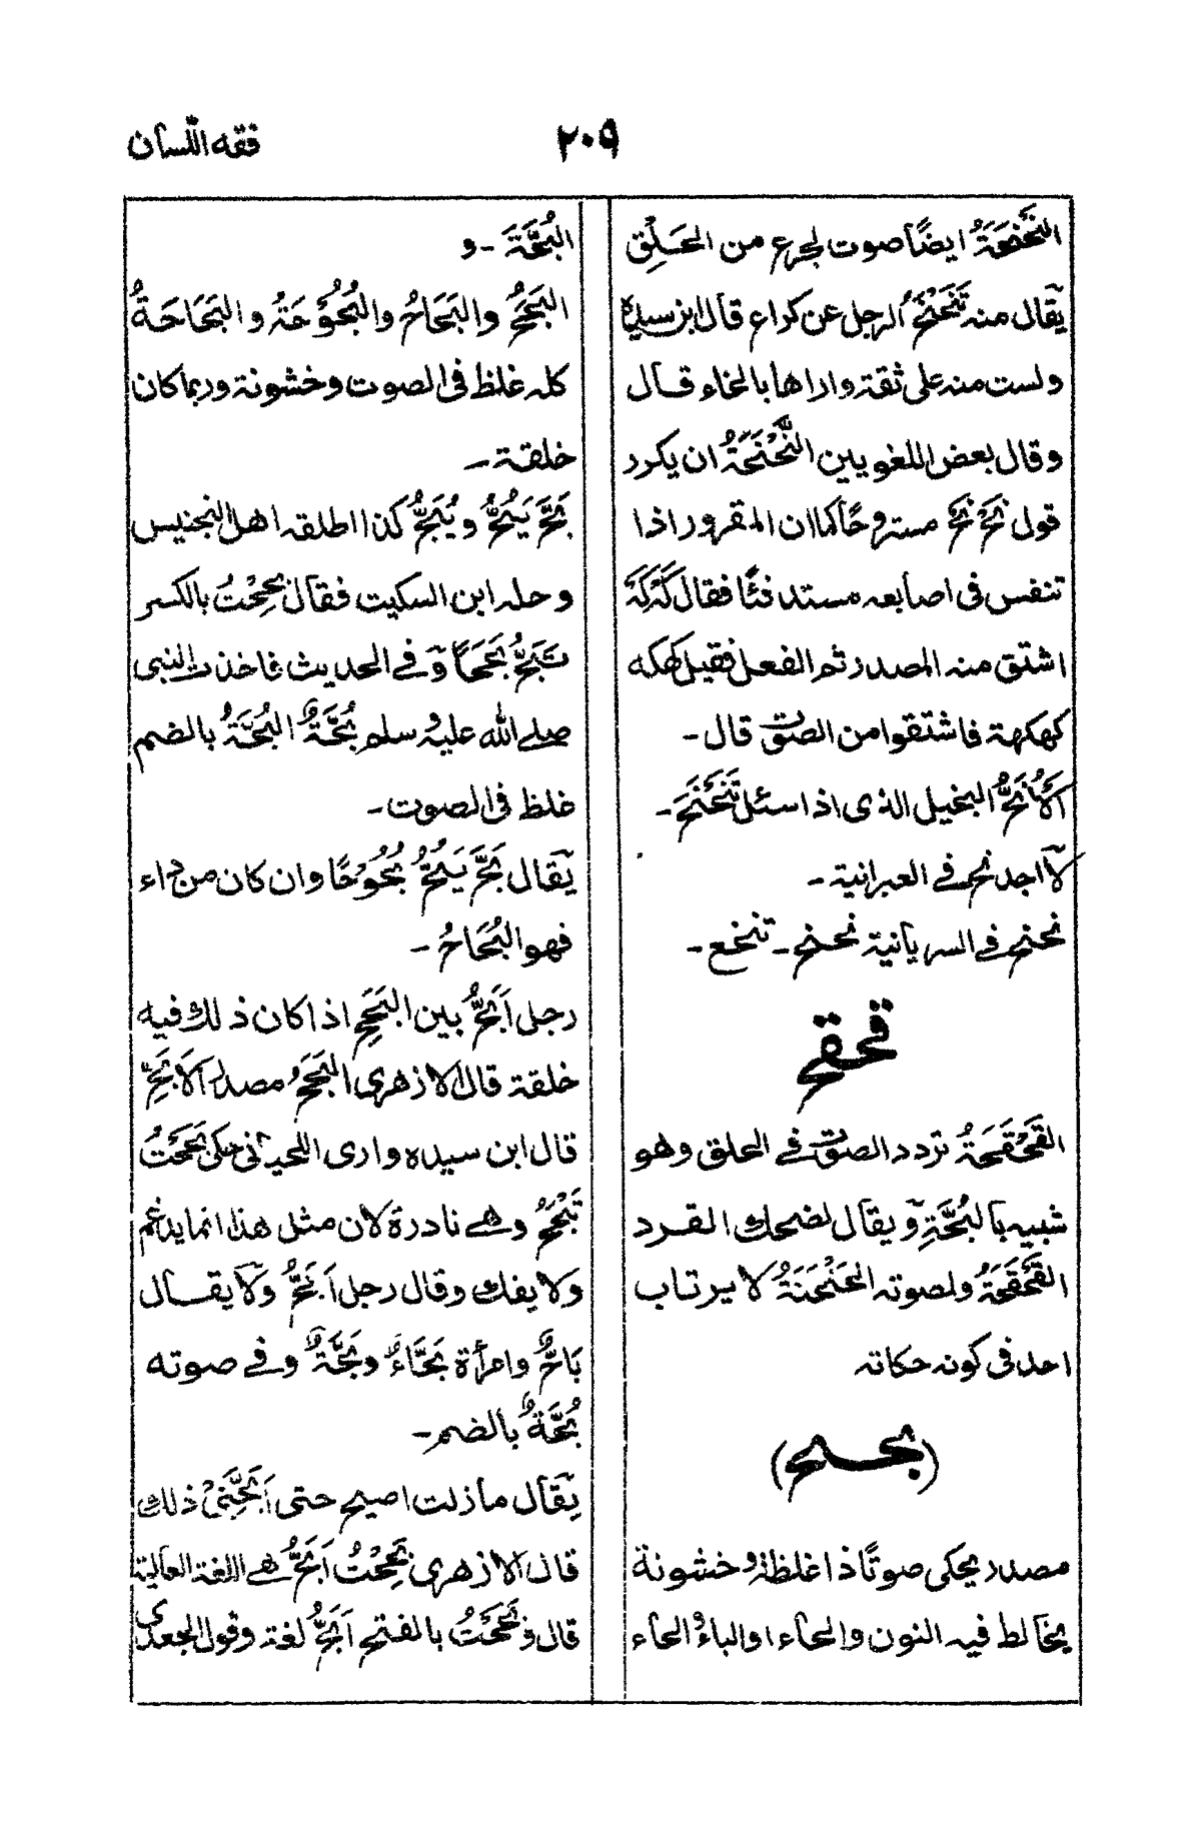 فقه اللسان
٢٠٩
النَّحْنَحَةُ ايضًا صوت لجرع من الحَلْق
يقال منه تَنَحْنَحَ الرجل عن كراع قال ابن سيده
ولست منه على ثقة واراها بالخاء قال
وقال بعض اللغويين النَّحْنَحَةُ ان يكرر
قول نَحْ نَحْ مستروحًا كما ان المقرور اذا
تنفس فى اصابعه مستدفئًا فقال كَهْ كَهْ
اشتق منه المصدر ثم الفعل فقيل كهكه
كهكهة فاشتقوا من الصوت قال -
اَلْاَنَحُّ البخيل الذى اذا سئل تَنَحْنَحَ -
لا اجد نح فے العبرانية -
نحنح فے السريانية نحنح - تنخع -
قحقح
القَحْقَحَةُ تردد الصوت فے الحلق وهو
شبيه بالبُحَّةِ ويقال لضحك القرد
القَحْقَحَةُ ولصوته الخَنْخَنَةُ لا يرتاب
احد فى كونه حكاته
(بحح)
مصدر يحكى صوتًا ذا غلظة وخشونة
يخالط فيه النون والحاء او الباء والحاء
البُحَّةَ - و
البَحَحُ والبَحَاحُ والبُحُوْحَةُ والبَحَاحَةُ
كله غلظ فى الصوت وخشونة وربما كان
خلقة -
بَحَّ يَبُحُّ ويُبَحُّ كذا اطلقه اهل التجنيس
وحله ابن السكيت فقال بَحِحْتُ بالكسر
تَبَحُّ بَحَحًا وفے الحديث فاخذت النبى
صلے الله عليه وسلم بُحَّةٌ البُحَّةُ بالضم
غلظ فى الصوت -
يقال بَحَّ يَبُحُّ بُحُوْحًا وان كان من داء
فهو البُحَاحُ -
رجل اَبَحُّ بين البَحَحِ اذا كان ذلك فيه
خلقة قال الازهرى البَحَحُ مصدر الاَبَحِّ
قال ابن سيده وارى اللحيانى حكى بَحَحْتُ
تَبْحَحُ وهے نادرة لان مثل هذا انما يدغم
ولا يفك وقال رجل اَبَحُّ ولا يقال
بَاحٌّ وامرأة بَحَّاءُ وبَحَّةٌ وفے صوته
بُحَّةٌ بالضم -
يقال ما زلت اصيح حتى اَبَحَّنِىْ ذلك
قال الازهرى بَحِحْتُ اَبَحُّ هے اللغة العالية
قال وبَحَحْتُ بالفتح اَبَحُّ لغة وقول الجعدى